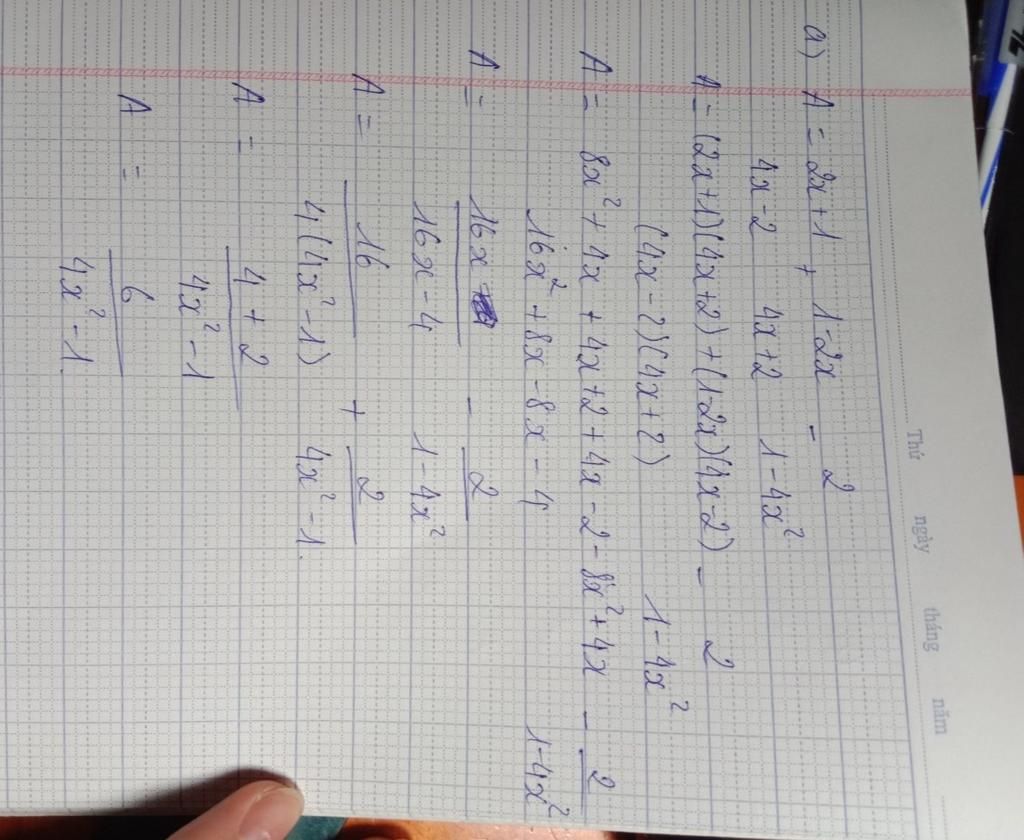 Thứ ngày tháng năm
a) A = 2x+1 + 1-2x - 2
4x-2 4x+2 1-4x²
A = (2x+1)(4x+2)+(1-2x)(4x-2) - 2
(4x-2)(4x+2) 1-4x²
A = 8x²+4x+4x+2+4x-2-8x²+4x - 2
16x²+8x-8x-4 1-4x²
A = 16x - 2
16x-4 1-4x²
A = 16 + 2
4(4x²-1) 4x²-1.
A = 4+2
4x²-1
A = 6
4x²-1.